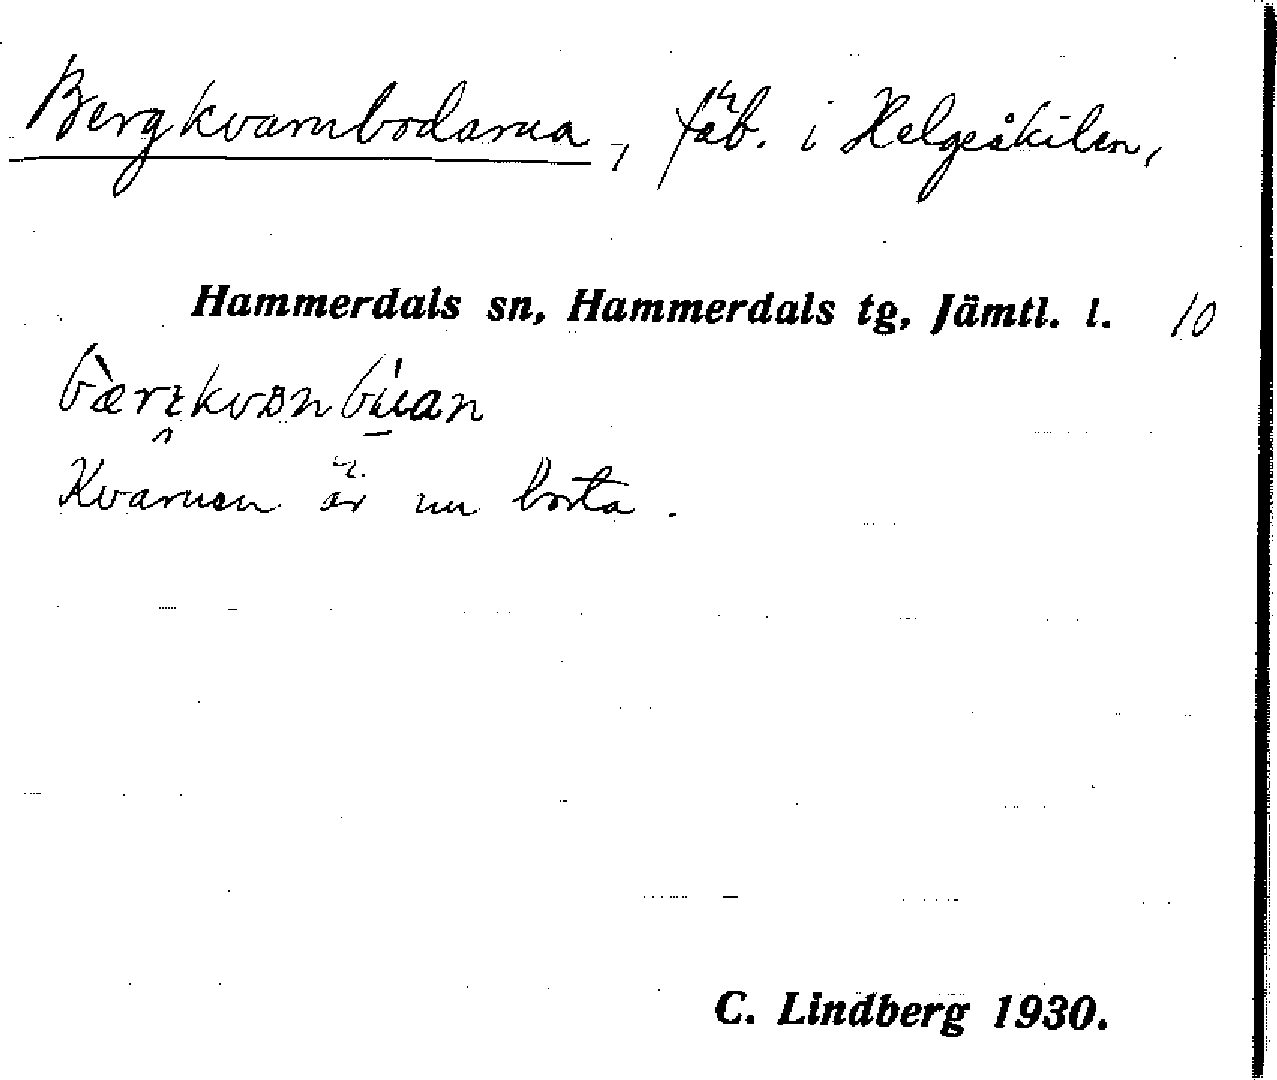 Bergkvarnbodarna, fäb. i Helgeåkilen,
Hammerdals sn, Hammerdals tg, Jämtl. l. 10
Kvarnen är nu borta.
C. Lindberg 1930.